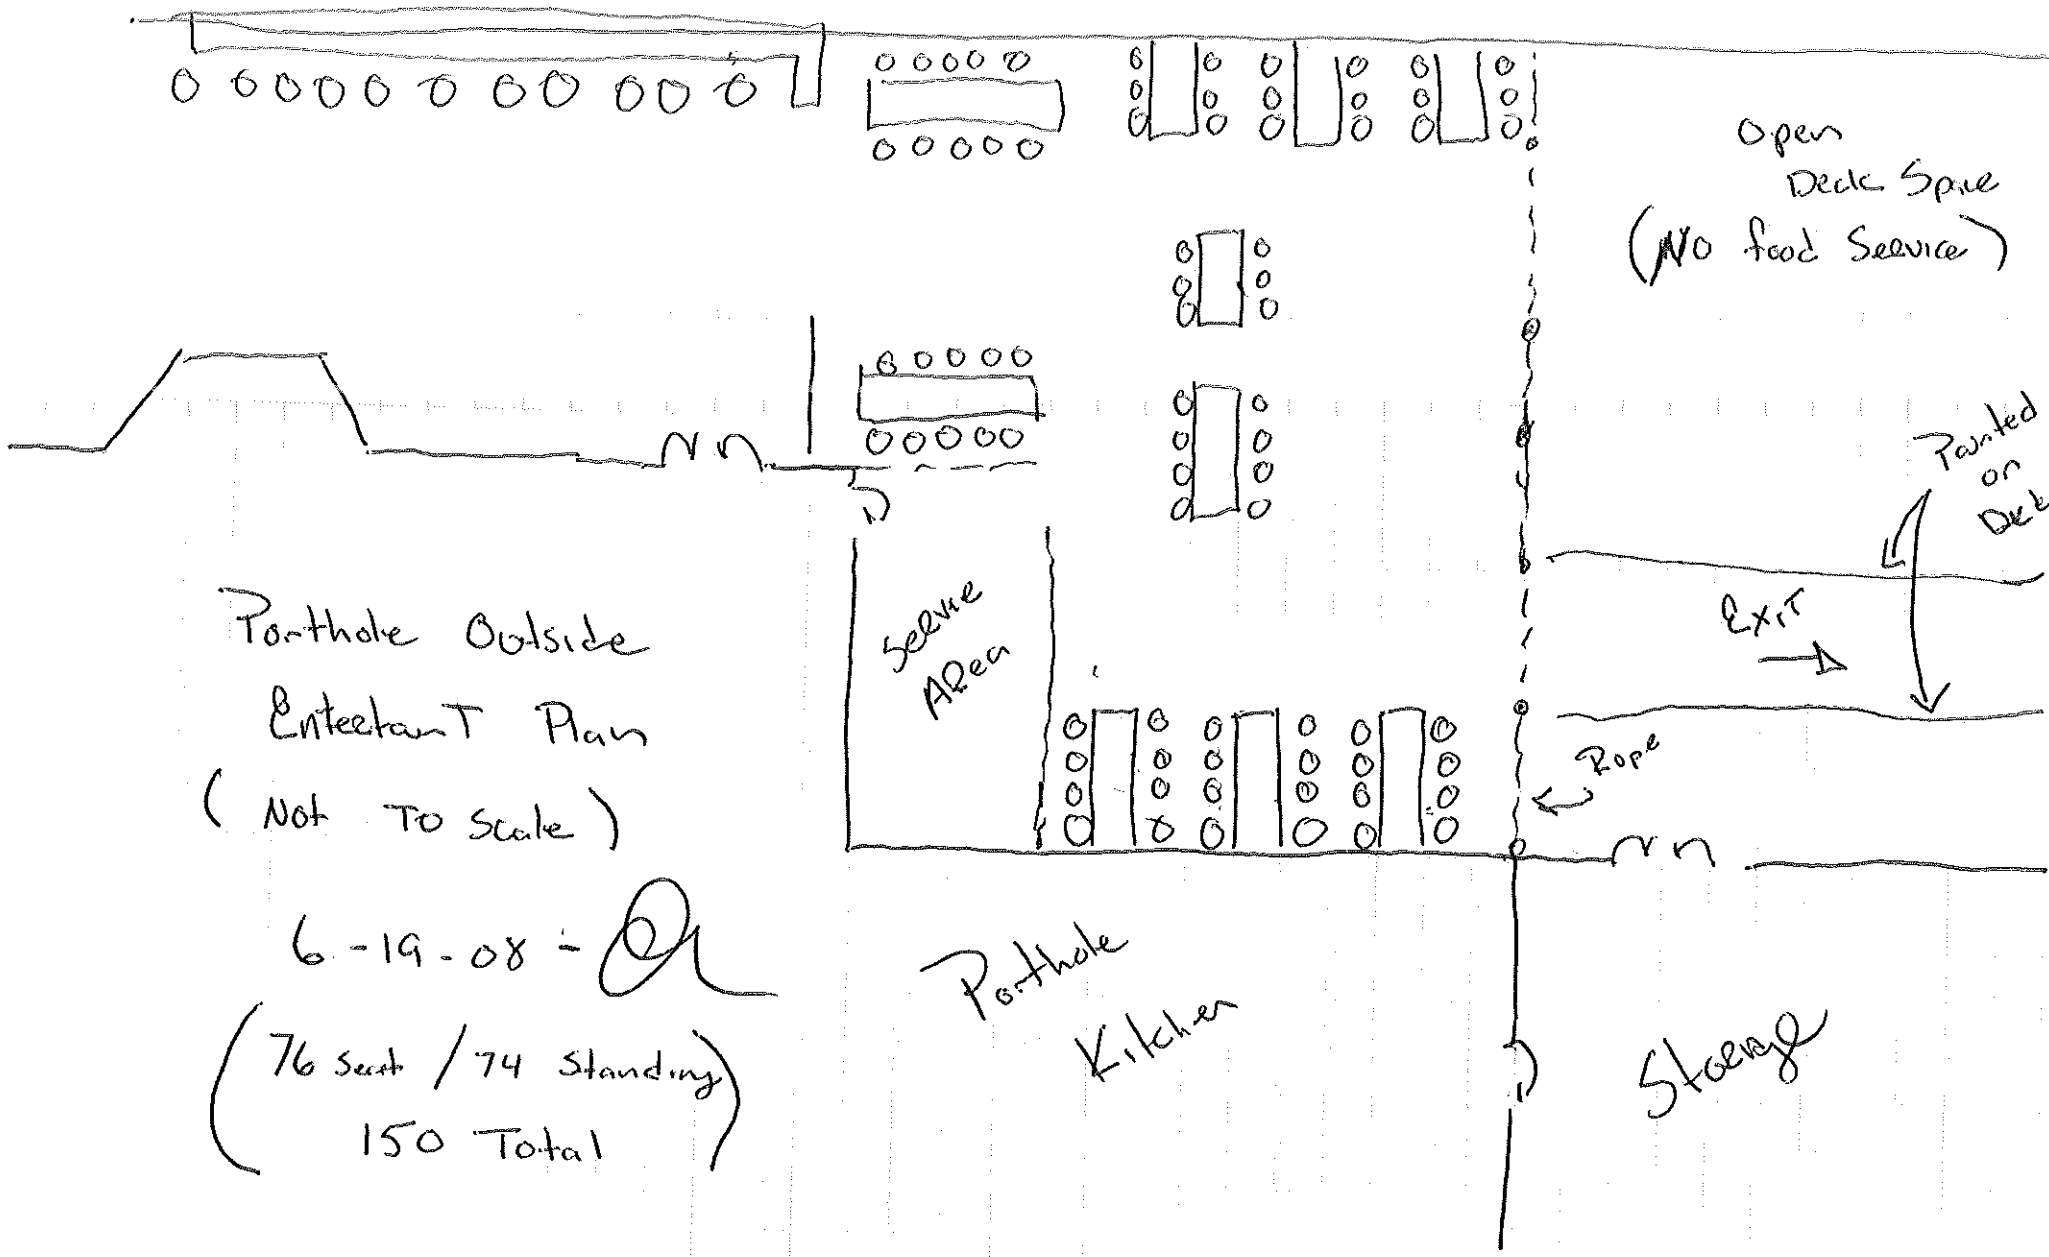 Open
Deck Space
(No food Service)
Painted
on
Deck
EXIT
Rope
Service
Area
Porthole Outside
Entertant Plan
(Not To Scale)
6-19-08 -
(76 Seat / 74 Standing
150 Total)
Porthole
Kitchen
Storage